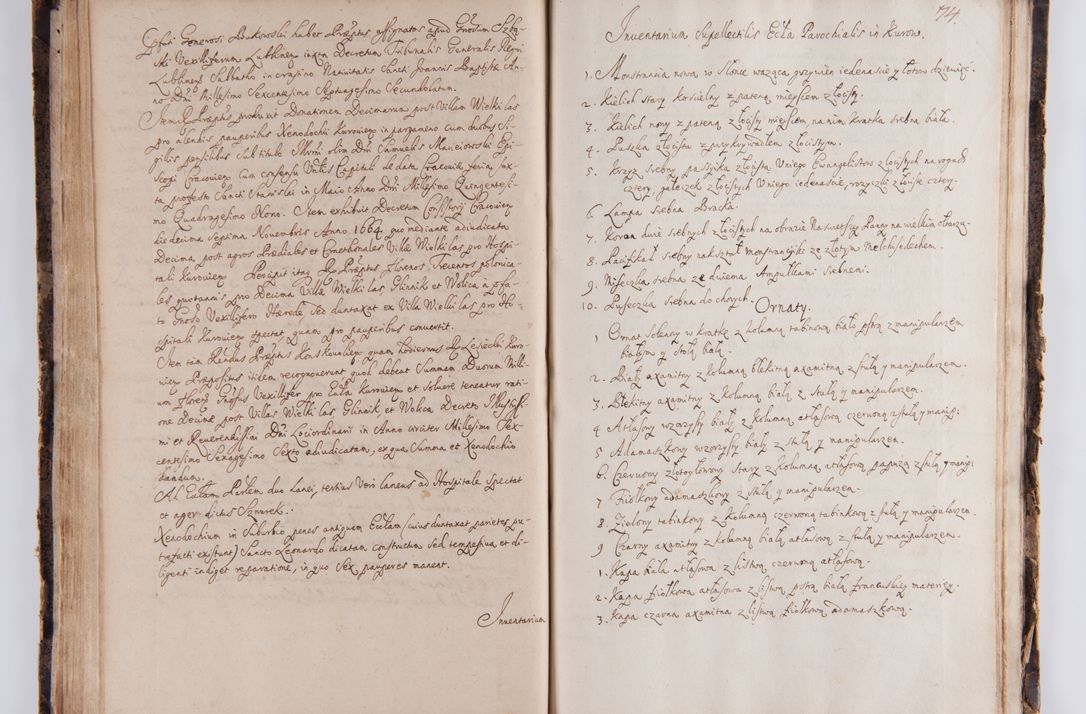 Generosi Bukowski habet Præptus assignatos apud Gnosum Szlen-
ski Vexilliferum Lublinen iuxta Decretum Tribunalis Generalis Regni
Lublinens Sabbatho in crastino Nativitatis Sancti Joannis Baptistæ An-
no Dni Millesimo Sexcentesimo Septuagesimo Secundo latum.
Item Præptus produxit Donationem Decimarum post Villam Wielki las
pro alendis pauperibus Xenodochii Kuroviens in pargameno cum duobus Si-
gillis pensilibus sub titule olim Dni Samuelis Macieiowski Epi-
scopi Cracovien cum consensu Vnblis Capituli de data Cracoviæ feria iux-
ta profesto Sancti Stanislai in Maio Anno Dni Millesimo Quingentesi-
mo Quadragesimo Nono. Item exhibuit Decretum Consistorij Cracovien
die decima septima Novembris Anno 1664 quo mediante adiudicata
Decima post agros Prædiales et Cmethonales Villæ Wielki las pro Hospi-
tali Kuroviens Percipit itaq R. Præptus florenos Trecentos polonica-
les quotannis pro Decima Villæ Wielki las Glinnik et Wolica à
to Gnoso Vexillifero Hærede sed duntaxat ex Villa Wielki las pro Ho-
spitali Kuroviens spectat, quam pro pauperibus convertit.
Item tam Rendus Præptus Konskovoliens quam hodiernus R. Lesiecki Kuro-
viens Præpositus itidem recognoverunt quod debent Summam Duorum Milli-
um florens Gnosus Vexillifer pro Eccla Kuroviens et solvere teneatur rati-
one Decimæ post Villas Wielki las Glinnik et Wolica Decreto Illustrissi-
mi et Reverendissimi Dni Lociordinarii in Anno circiter Millesimo Sex-
centesimo Sexagesimo Sexto adiudicatam, ex qua Summa et Xenodochio
dandum.
Ad Ecclam Parlem duo Lanei, tertius Vero laneus ad Hospitale spectat
et ager dictus Sznurek.
Xenodochium in Suburbio penes antiquam Ecclam (cuius duntaxat parietes pu-
trefacti existunt) Sancto Leonardo dicatam constructum sed tempestiva et di-
ligenti indiget reparatione, in quo Sex pauperes manent.
Inventarium
714.
Inventarium Supellectilis Eccla Parochialis in Kurow.
1. Monstrancia nowa w Słonce wazącą grzywien iedenascie y łotow dziewięc.
2. Kielich stary Koscielny z pateną mieyscem złocisty.
3. Kielich nowy z pateną złocisty mieyscem, na nim kratka srebna biała.
4. Puszka złocista z przykrywadłem złocistym.
5. Krzyz srebny passyika złocista, V niego Ewangelistow złocistych na rogach
cztery, gałeczek złocistych V niego iedenascie, rozyczki złociste cztery.
6. Lampa srebna Bracka.
7. Koron dwie srebnych złocistych na obrazie Naswietszey Panny na wielkim ołtarzu.
8. Pacifikał srebny na kształt monstrancyiki ze złotym Melchisedechem.
9. Miseczka srebna ze dwiema Ampułkami srebnemi.
10. Puszeczka srebna do chorych.
Ornaty.
1 Ornat Solenny w kratkę z kolumną tabinową biało pstrą z manipularzem
białym y stołą białą.
2. Biały axamitny z kolumną błekitną axamitną z stułą y manipularzem.
3. Błekitny axamitny z kolumną białą z stułą y manipularzem.
4 Atłasowy wzorzysty biały z kolumną atłasową czerwoną z stułą y manip:
5 Adamaszkowy wzorzysty biały z stułą y manipularzem.
6. Czerwony złotogłowowy stary z kolumną atłasową papuzą z stułą, y manip:
7 Fiołkowy adamaszkowy z stułą, y manipularzem.
8. Zielony tabinkowy z kolumną czerwoną tabinkową z stułą y manipularzem.
9 Czarny axamitny z kolumną białą atłasową z stułą, y manipularzem.
1. Kapa biała atłasowa z listwą czerwoną atłasową.
2. Kapa fiołkowa atłasowa z listwą pstrą białą francuskiey materiey.
3. Kapa czarna axamitna z listwą fiołkową adamaszkową.